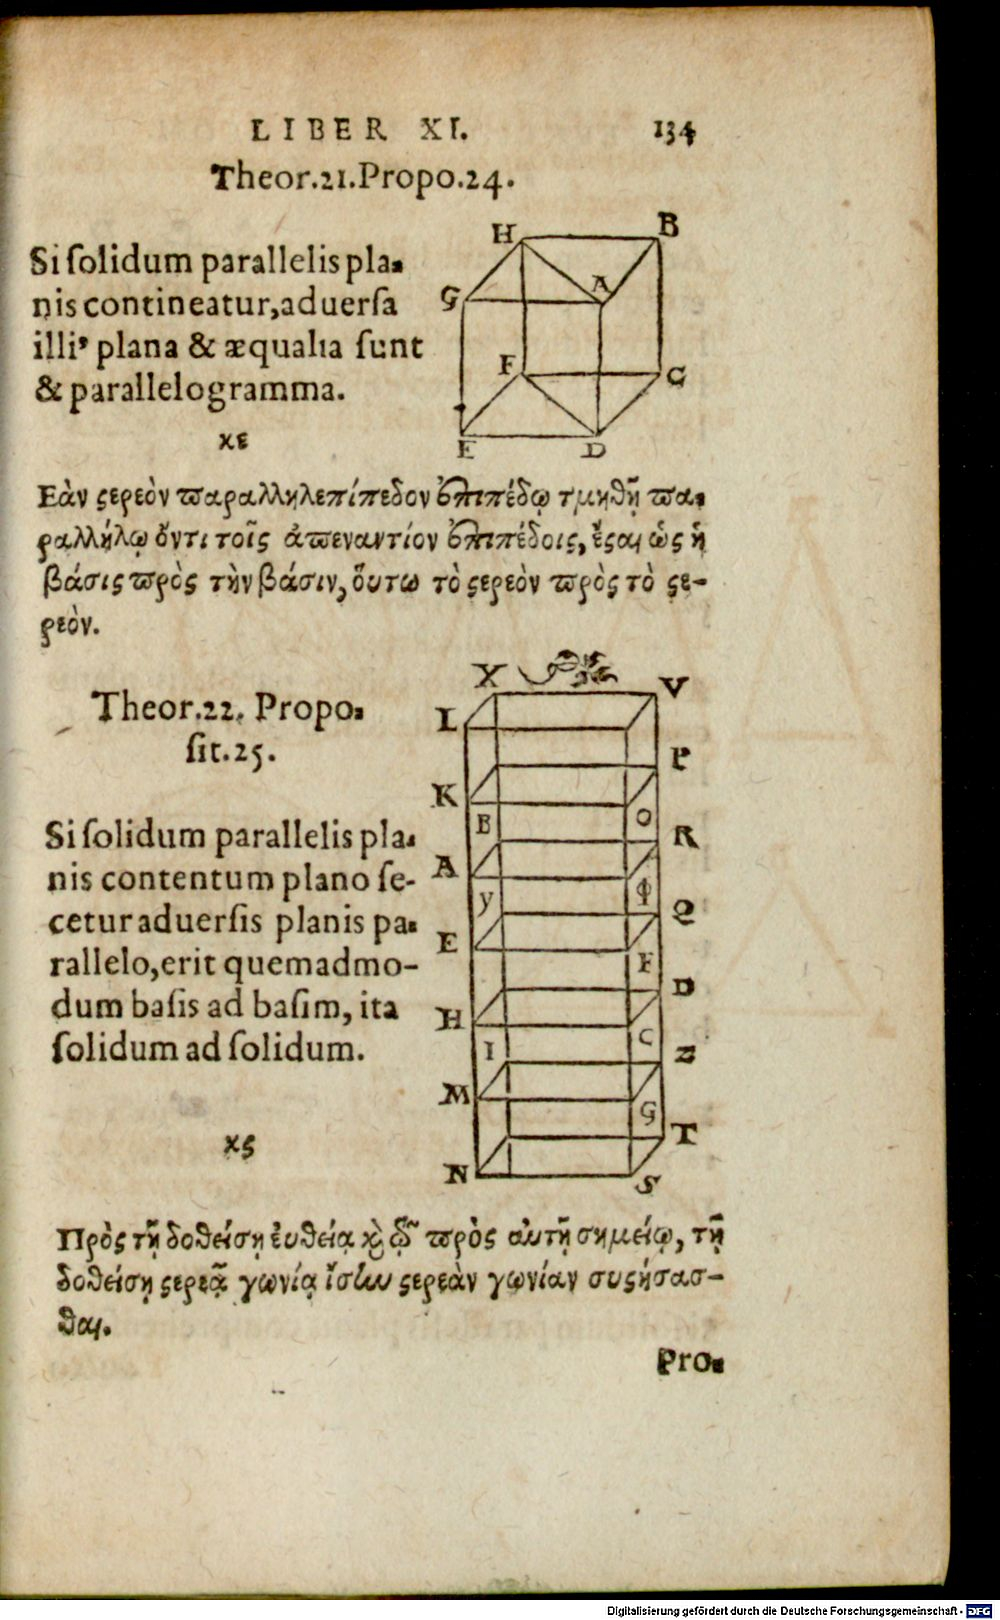 LIBER XI. 134
Theor.21.Propo.24.
Si ſolidum parallelis pla-
nis contineatur,aduerſa
illi' plana & æqualia ſunt
& parallelogramma.
H B
G A
F C
E D
κε
Εὰν ϛερεὸν ϖαραλληλεπίπεδον ἐπιπέδῳ τμηθῇ ϖα-
ραλλήλῳ ὄντι τοῖς ἀϖεναντίον ἐπιπέδοις, ἔϛαι ὡς ἡ
βάσις ϖρὸς τὴν βάσιν, ὅυτω τὸ ϛερεὸν ϖρὸς τὸ ϛε-
ρεὸν.
Theor.22. Propo-
ſit.25.
Si ſolidum parallelis pla-
nis contentum plano ſe-
cetur aduerſis planis pa-
rallelo,erit quemadmo-
dum baſis ad baſim, ita
ſolidum ad ſolidum.
X V
L
P
K
B O
R
A
y φ
Q
E
F
D
H
I C
Z
M
G
T
N S
κϛ
Πρὸς τῇ δοθείσῃ ἐυθείᾳ ϗ τῷ ϖρὸς αὐτῇ σημείῳ, τῇ
δοθείσῃ ϛερεᾷ γωνίᾳ ἴσην ϛερεὰν γωνίαν συϛήσασ-
θαι.
Pro-
Digitalisierung gefördert durch die Deutsche Forschungsgemeinschaft - DFG